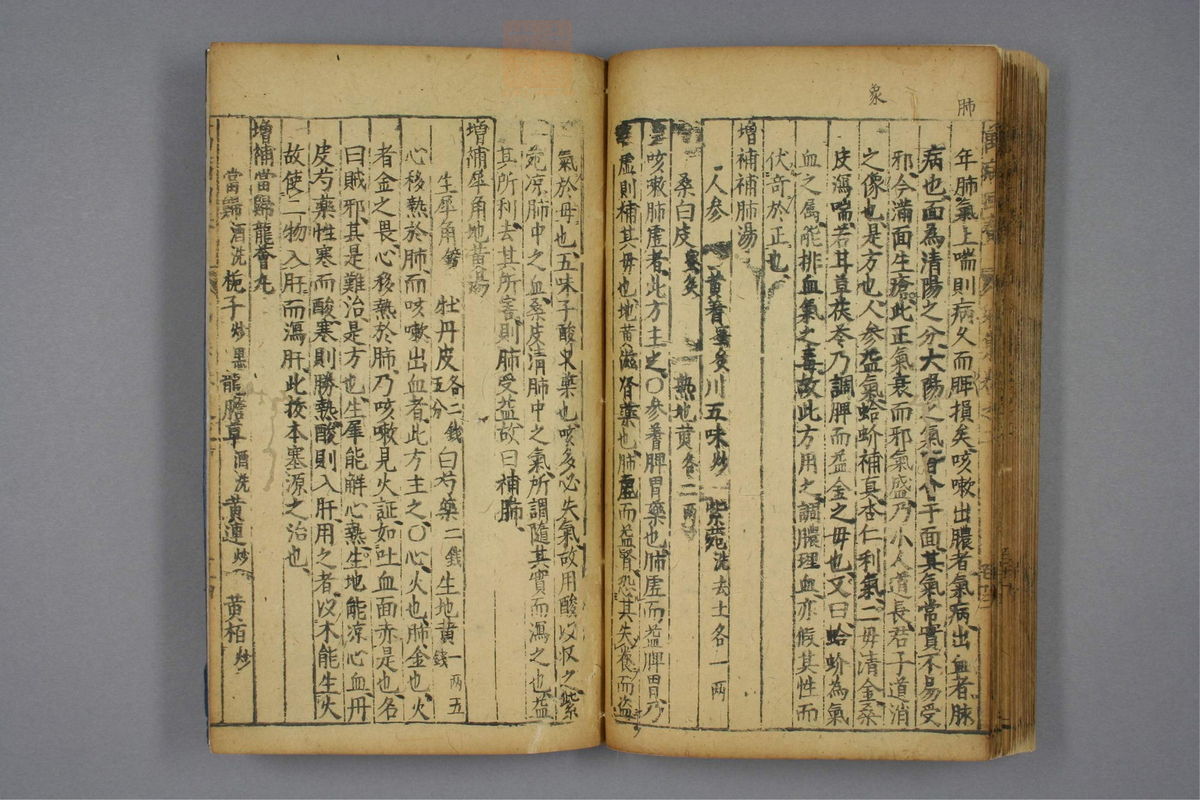 肺
象
年肺氣上喘則病久而脾損矣咳嗽出膿者氣病出血者脉
病也面為清陽之分大陽之氣皆會于面其氣常實不易受
邪今滿面生瘡此正氣衰而邪氣盛乃小人道長君子道消
之像也是方也人参益氣蛤蚧補真杏仁利氣二母清金桑
皮瀉喘若耳草茯苓乃調脾而益金之母也又曰蛤蚧為氣
血之属能排血氣之毒故此方用之調膿理血亦假其性而
伏奇於正也
增補補肺湯
人参 黄蓍蜜炙川五味炒 紫菀洗去土各一兩
桑白皮蜜炙 熟地黄各二兩
咳嗽肺虛者此方主之○参蓍脾胃藥也肺虛而益脾胃乃
虛則補其母也地黄滋腎藥也肺虛而益腎恐其失養而盗
氣於母也五味子酸収藥也咳多必失氣故用酸以収之紫
菀凉肺中之血桑皮清肺中之氣所調随其實而瀉之也益
其所利去其所害則肺受益故曰補肺
增補犀角地黄湯
生犀角鎊 牡丹皮各二錢五分白芍藥二錢生地黄一兩五錢
心移熱於肺而咳嗽出血者此方主之○心火也肺金也火
者金之畏心移熱於肺乃咳嗽見火証如吐血面赤是也名
曰賊邪其是難治是方也生犀能解心熱生地能凉心血丹
皮芍藥性寒而酸寒則勝熱酸則入肝用之者以木能生火
故使二物入肝而瀉肝此拔本塞源之治也
增補當歸龍薈丸
當歸酒洗梔子炒黒龍膽草酒洗黄連炒 黄栢炒